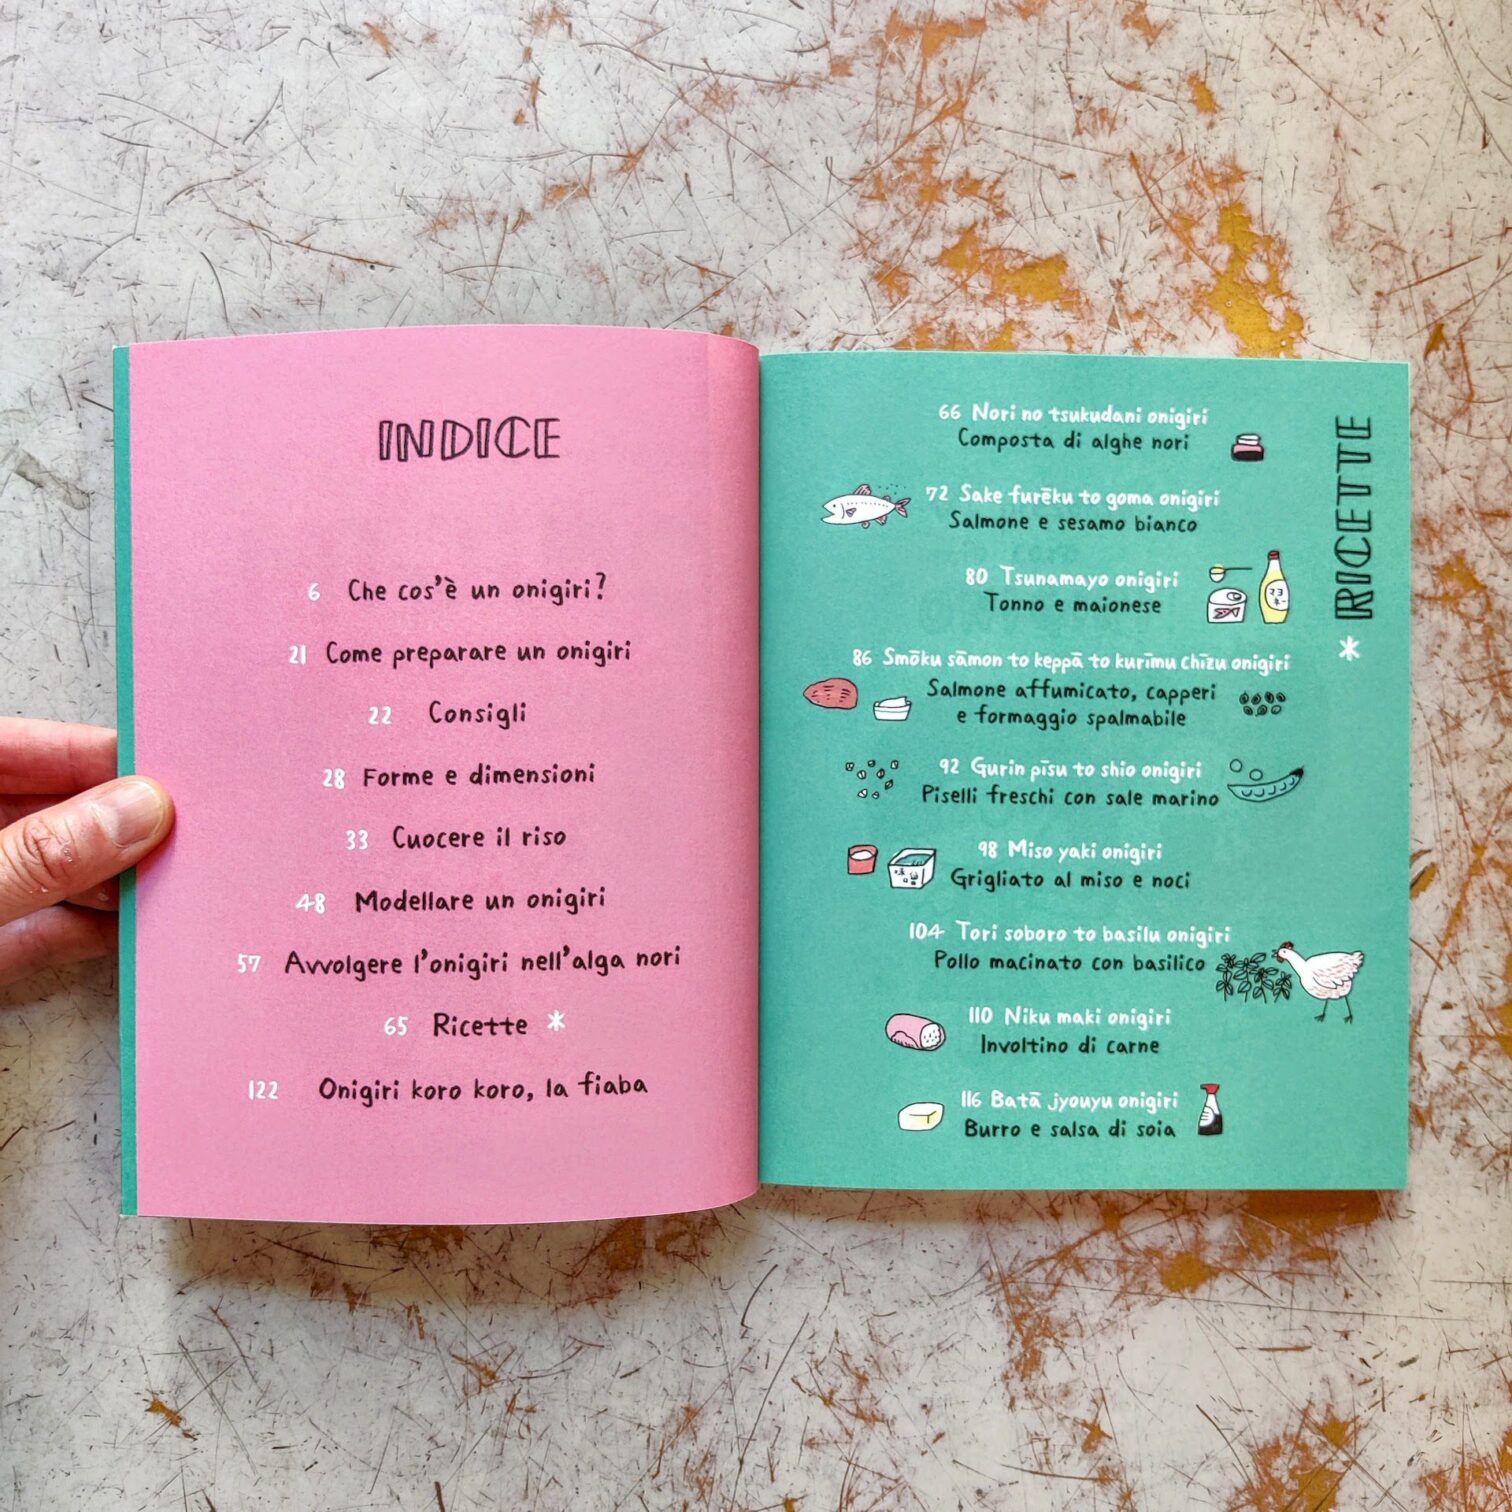 INDICE
6 Che cos'è un onigiri?
21 Come preparare un onigiri
22 Consigli
28 Forme e dimensioni
33 Cuocere il riso
48 Modellare un onigiri
57 Avvolgere l'onigiri nell'alga nori
65 Ricette *
122 Onigiri koro koro, la fiaba
RICETTE *
66 Nori no tsukudani onigiri
Composta di alghe nori
72 Sake furēku to goma onigiri
Salmone e sesamo bianco
80 Tsunamayo onigiri
Tonno e maionese
86 Smōku sāmon to keppā to kurīmu chīzu onigiri
Salmone affumicato, capperi
e formaggio spalmabile
92 Gurin pīsu to shio onigiri
Piselli freschi con sale marino
98 Miso yaki onigiri
Grigliato al miso e noci
104 Tori soboro to basilu onigiri
Pollo macinato con basilico
110 Niku maki onigiri
Involtino di carne
116 Batā jyouyu onigiri
Burro e salsa di soia